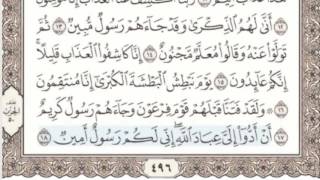 رَّبَّنَا ٱكْشِفْ عَنَّا ٱلْعَذَابَ إِنَّا مُؤْمِنُونَ
١٢ أَنَّىٰ لَهُمُ ٱلذِّكْرَىٰ وَقَدْ جَآءَهُمْ رَسُولٌ مُّبِينٌ ١٣ ثُمَّ
تَوَلَّوْا۟ عَنْهُ وَقَالُوا۟ مُعَلَّمٌ مَّجْنُونٌ ١٤ إِنَّا كَاشِفُوا۟ ٱلْعَذَابِ قَلِيلًا
إِنَّكُمْ عَآئِدُونَ ١٥ يَوْمَ نَبْطِشُ ٱلْبَطْشَةَ ٱلْكُبْرَىٰٓ إِنَّا مُنتَقِمُونَ
١٦ وَلَقَدْ فَتَنَّا قَبْلَهُمْ قَوْمَ فِرْعَوْنَ وَجَآءَهُمْ رَسُولٌ كَرِيمٌ
١٧ أَنْ أَدُّوٓا۟ إِلَىَّ عِبَادَ ٱللَّهِ إِنِّى لَكُمْ رَسُولٌ أَمِينٌ ١٨
٤٩٦